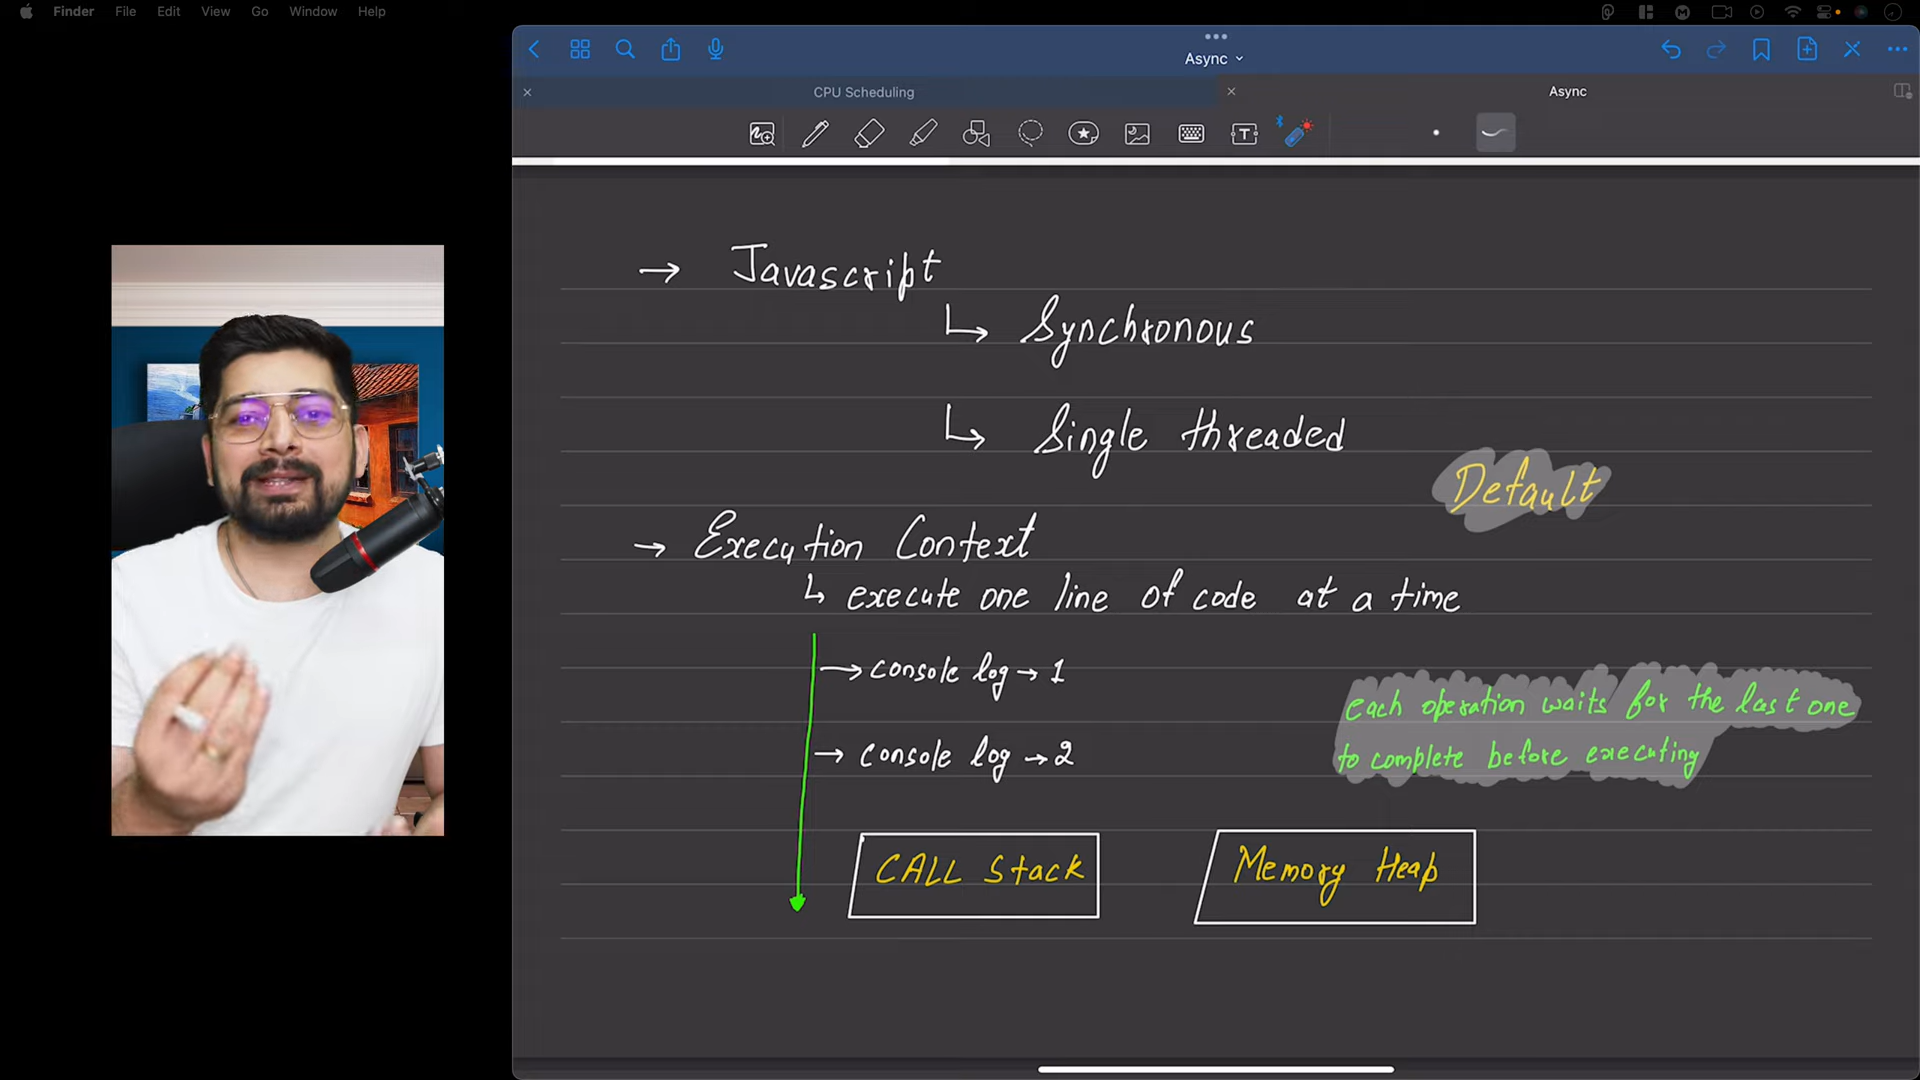 Finder File Edit View Go Window Help
Async
CPU Scheduling
Async
T
→ Javascript
↳ Synchronous
↳ Single threaded
Default
→ Execution Context
↳ execute one line of code at a time
→ console log → 1
each operation waits for the last one
→ console log → 2
to complete before executing
CALL Stack
Memory Heap